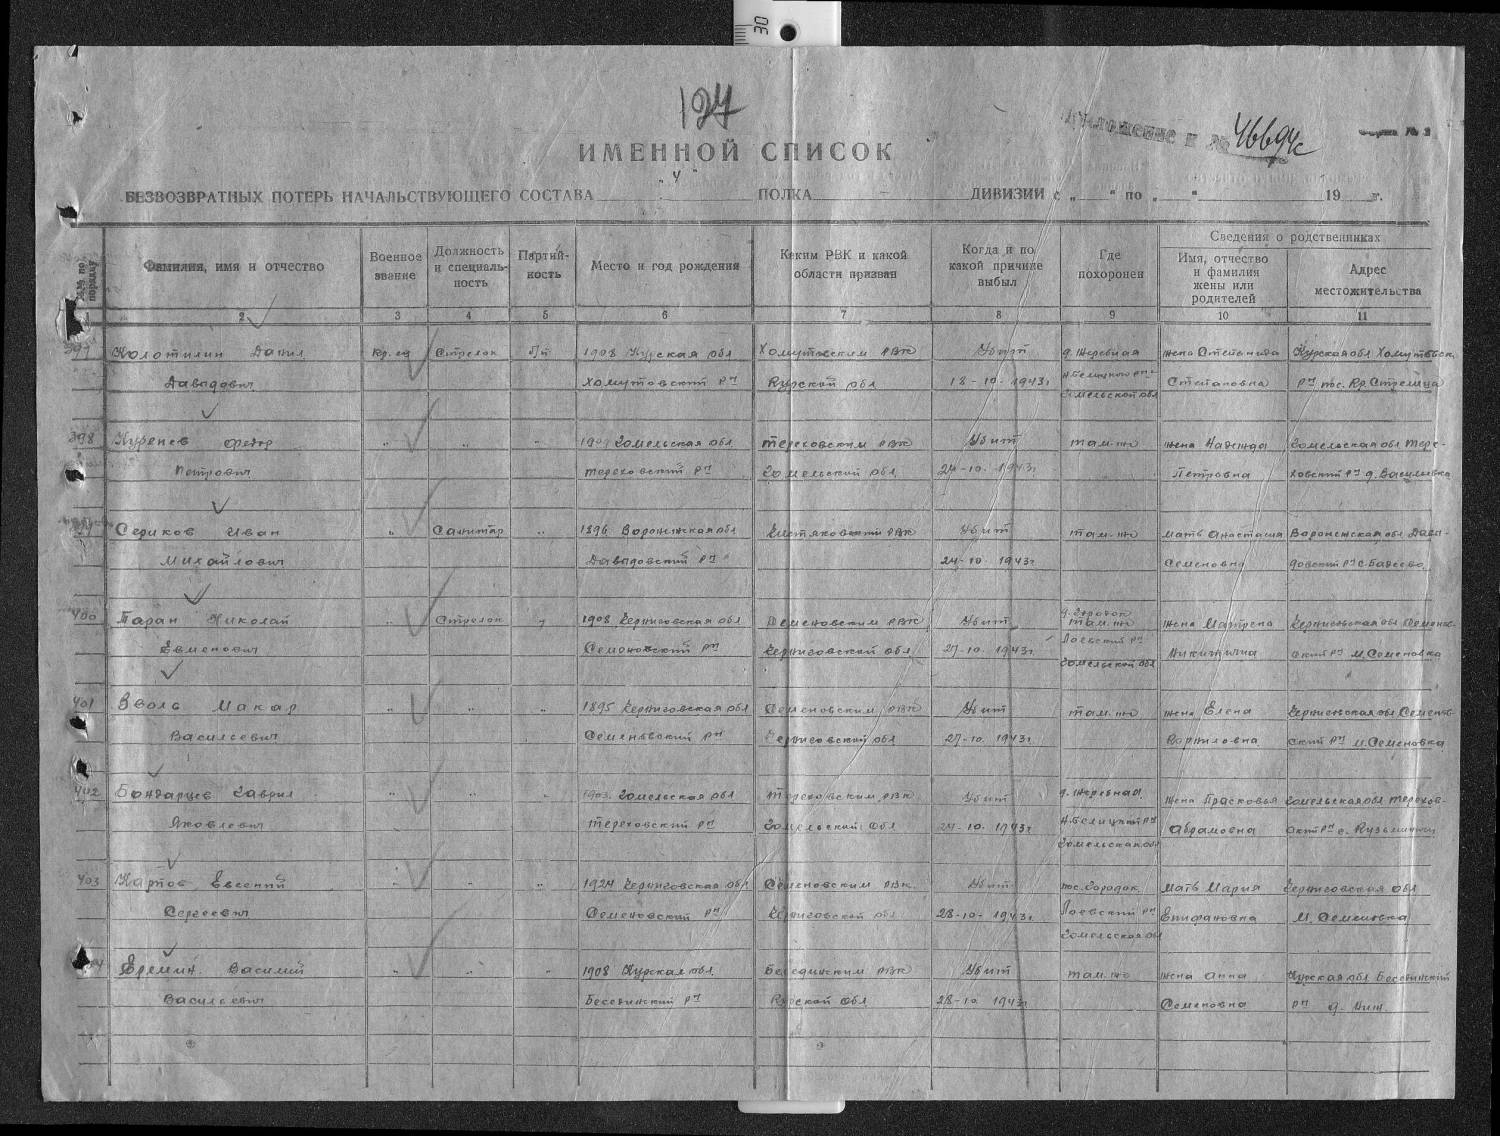 30
127
Приложение к № 46694с
ИМЕННОЙ СПИСОК
БЕЗВОЗВРАТНЫХ ПОТЕРЬ НАЧАЛЬСТВУЮЩЕГО СОСТАВА ПОЛКА ДИВИЗИИ с „ “ по „ “ 19 г.
№№ по порядку
Фамилия, имя и отчество
Военное звание
Должность и специальность
Партийность
Место и год рождения
Каким РВК и какой области призван
Когда и по какой причине выбыл
Где похоронен
Сведения о родственниках
Имя, отчество и фамилия жены или родителей
Адрес местожительства
2 3 4 5 6 7 8 9 10 11
397 Колотилин Данил кр-ец Стрелок б/п 1908 Курская обл Хомутовским РВК Убит д. Жеребная жена Степанида Курская обл Хомутовск.
Давыдович Хомутовский р-н Курской обл 18-10-1943г Н.Белицкого р-на Степановна р-н пос. Кр. Стрелица
Гомельской обл
398 Куренев Федор " " " Гомельская обл Тереховским РВК Убит там-же жена Надежда Гомельская обл Тере-
Петрович Тереховский р-н Гомельской обл 24-10-1943г Петровна ховский р-н д. Васильевка
Сериков Иван " Санитар " 1896 Воронежская обл Чистяковский РВК Убит там-же мать Анастасия Воронежская обл Давы-
Михайлович Давыдовский р-н 24-10-1943г Семеновна довский р-н с.
400 Таран Николай " Стрелок " 1908 Черниговская обл Семеновским РВК Убит там-же жена Матрена Черниговская обл Семенов-
Евменович Семеновский р-н Черниговской обл 27-10-1943г Лоевский р-н Никитична ский р-н м. Семеновка
Гомельской обл
401 Вваль Макар " " " 1895 Черниговская обл Семеновским РВК Убит там-же жена Елена Черниговская обл Семенов-
Васильевич Семеновский р-н Черниговской обл 27-10-1943г Корниловна ский р-н м. Семеновка
402 Бондарцев Гаврил " " " 1903 Гомельская обл Тереховским РВК Убит д. Жеребная жена Прасковья Гомельская обл Терехов-
Яковлевич Тереховский р-н Гомельской обл 24-10-1943г Н.Белицкий р-н Абрамовна ский р-н с.
Гомельская обл
403 Карпов Евгений " " " 1924 Черниговская обл Семеновским РВК Убит пос. Городок мать Мария Черниговская обл
Сергеевич Семеновский р-н Черниговской обл 28-10-1943г Лоевский р-н Епифановна м. Семеновка
Гомельская обл
Еремин Василий " " " 1908 Курская обл. Беседнским РВК Убит там-же жена Анна Курская обл Беседнский
Васильевич Беседнский р-н Курской обл 28-10-1943г Семеновна р-н д. Ниж